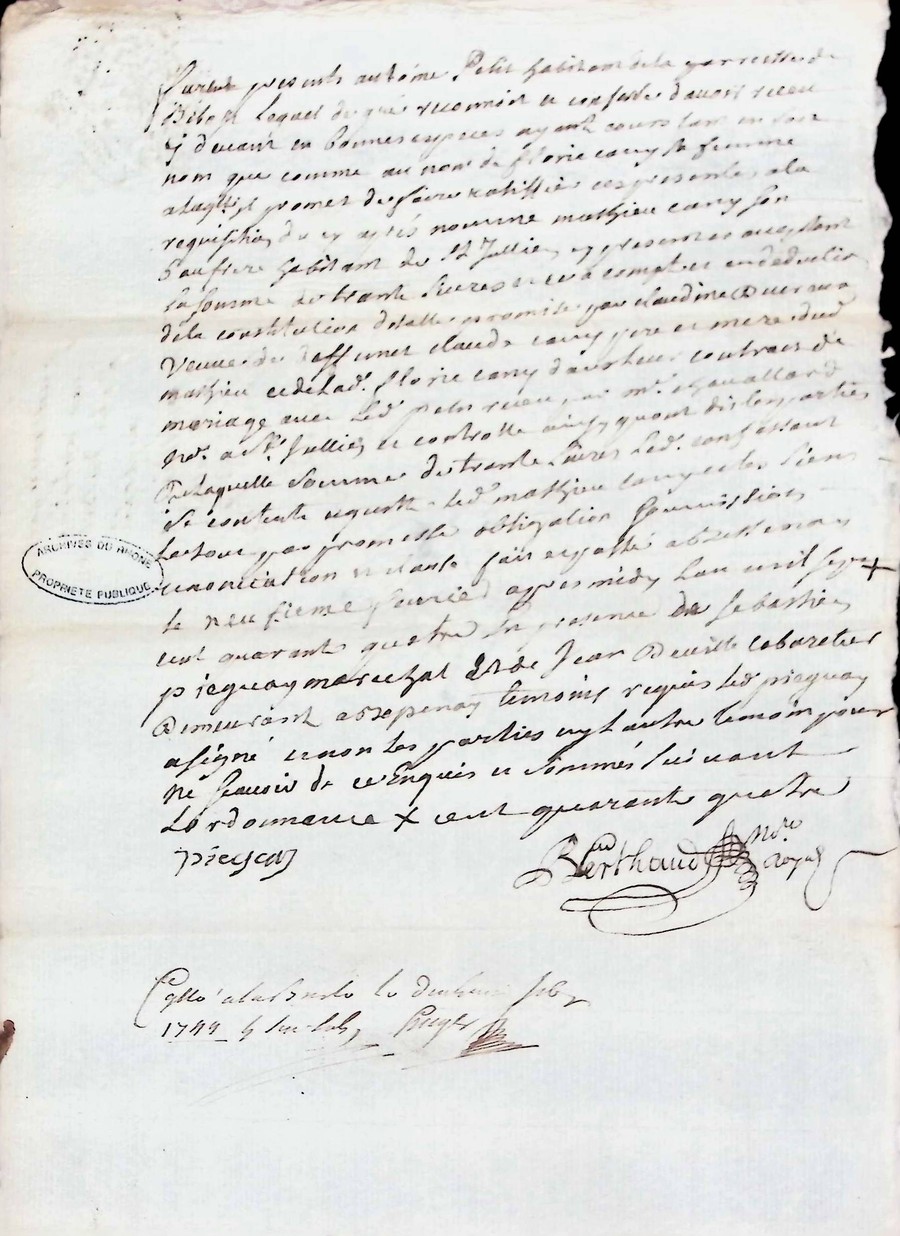 furent presents antoine Petit habitant de la parroisse de
Bibost lequel de gré reconnoit et confesse d'avoir receu
cy devant en bonnes especes ayant cours tant en son
nom que comme au nom de florie cany sa femme
a laqlle il promet de faire ratiffier ces presentes a la
requisition de cy après nommé mathieu cany son
beaufrere habitant de St Jullien cy present et acceptant
la somme de trante livres et ce a compte et en deduction
de la constitution dotalle promise par claudine
veuve de deffunct claude cany pere et mere dud
mathieu et de lad. florie cany dans leur contract de
mariage avec led petit receu par me chavallard
nore a St Jullien et controllé ainsy quont dit les parties
De laquelle somme de trante livres led. confessant
se contente et quitte led mathieu cany et les siens
le tout par promesse obligation soumission
renonciation et clause fait et passé a
le neufieme fevrier apres midy lan mil sept +
cent quarante quatre en presence de sebastien
piegnay marechal et de Jean Deville cabaretier
Demeurant a temoins requis led piegnay
a signé et non les parties ny l'autre temoin pour
ne scavoir de ce Enquis et sommés suivant
Lordonnance + cent quarante quatre
piegnay
Berthaud Nore
Royal
Collé a la le
1744
ARCHIVES DU RHÔNE
PROPRIÉTÉ PUBLIQUE